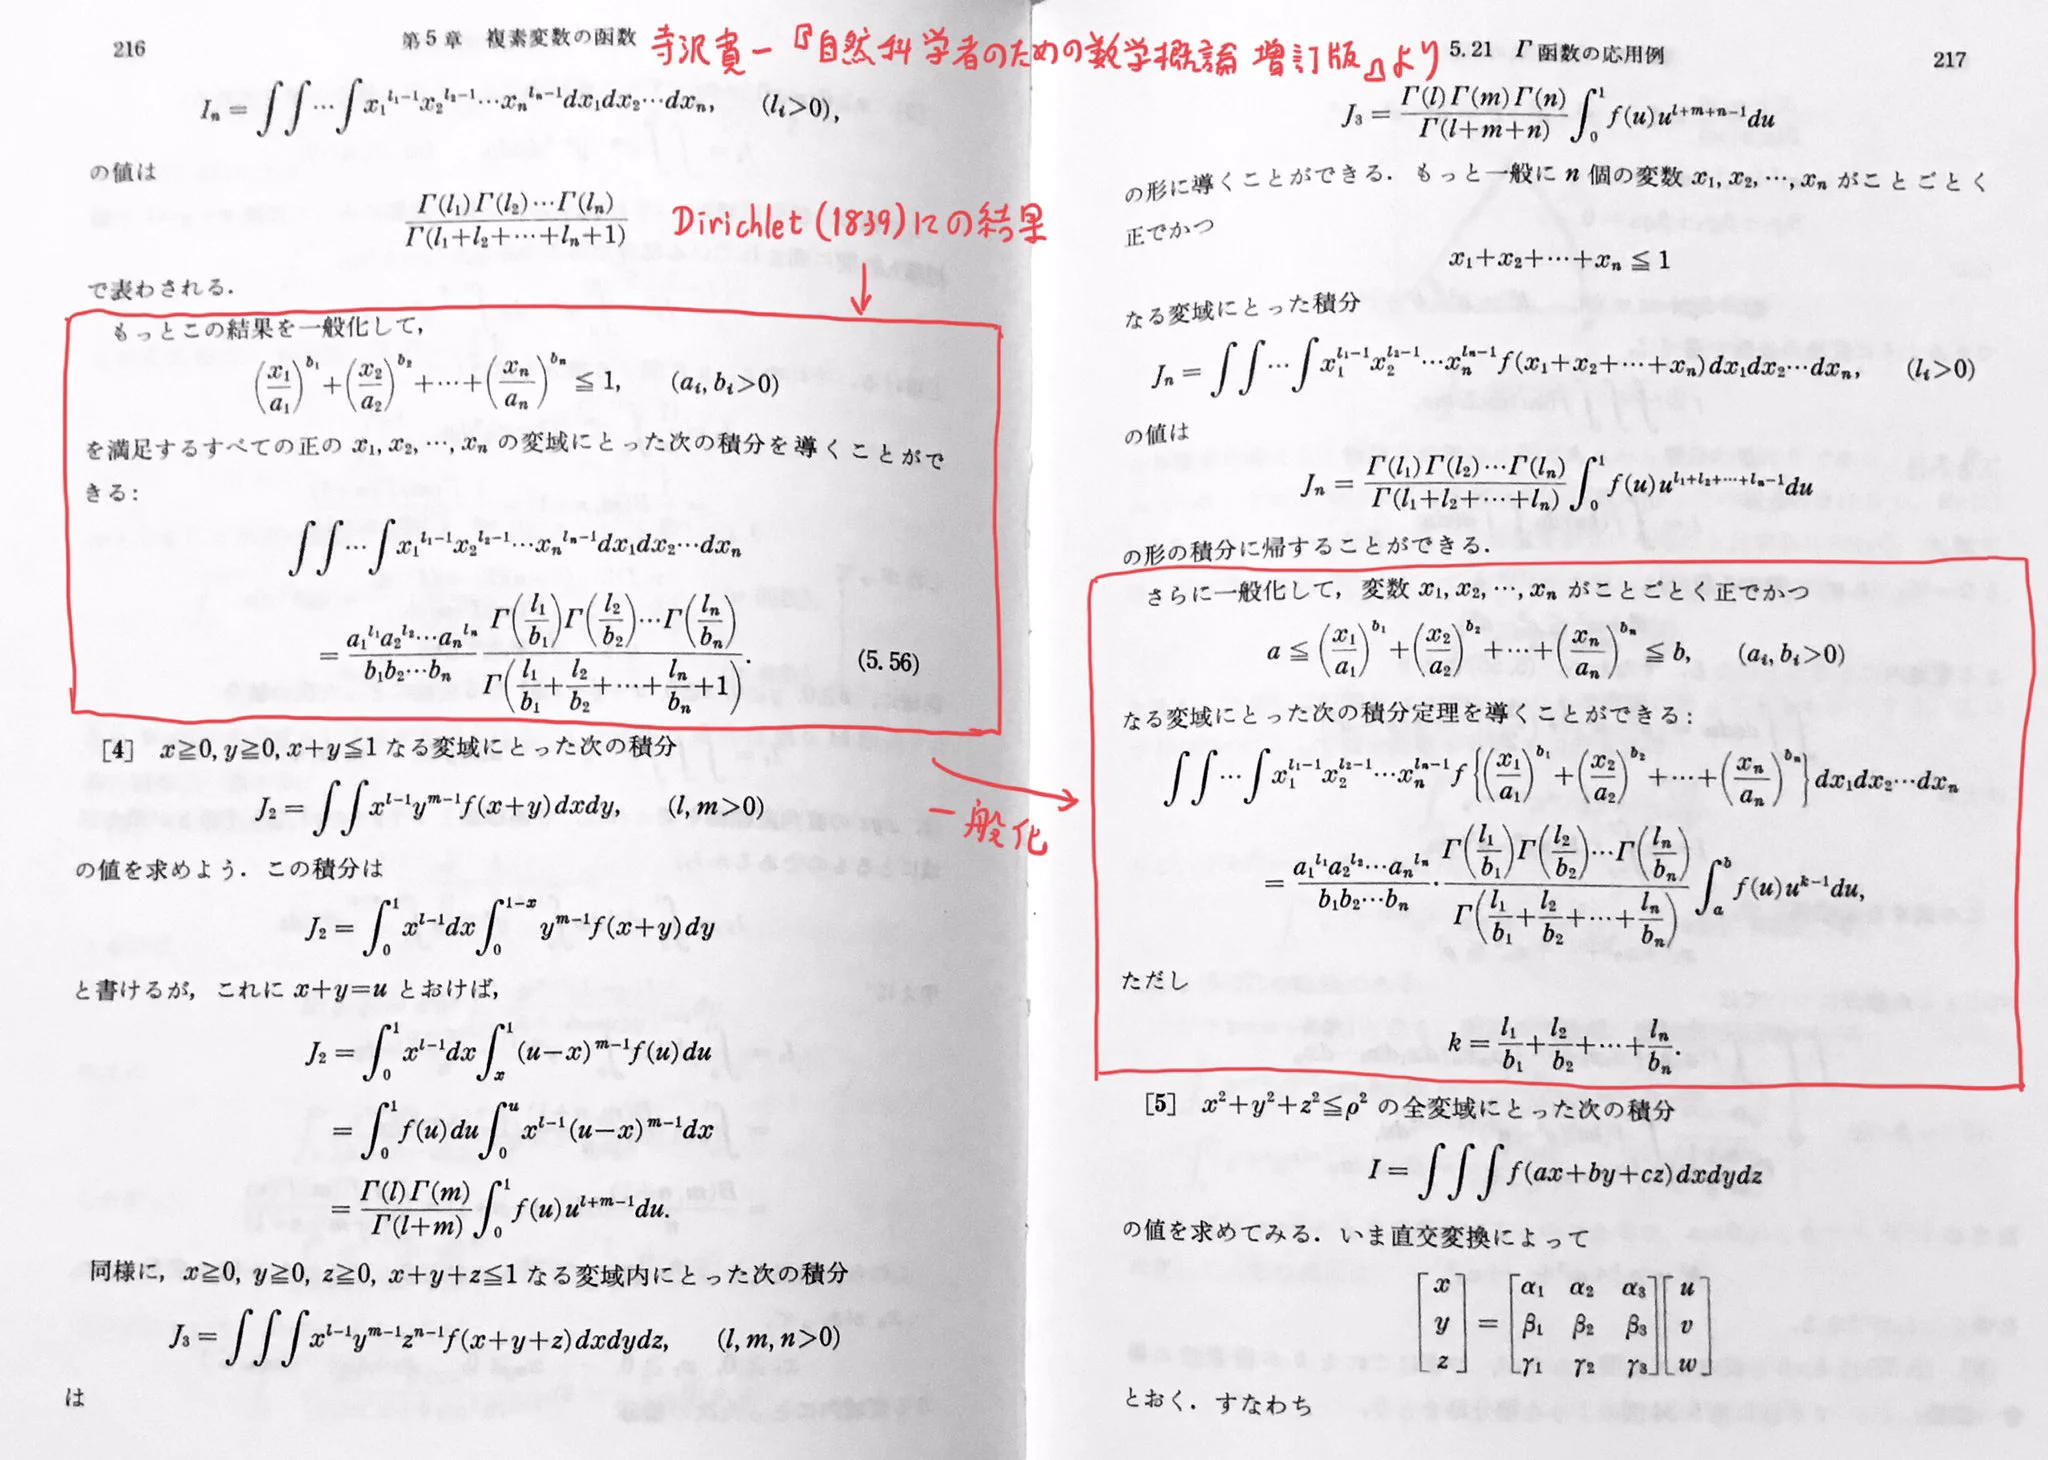 216 第5章 複素変数の函数
寺沢寛一『自然科学者のための数学概論 増訂版』より
Iₙ = ∫∫⋯∫x₁^{l₁−1}x₂^{l₂−1}⋯xₙ^{lₙ−1}dx₁dx₂⋯dxₙ, (lᵢ>0),
の値は
Γ(l₁)Γ(l₂)⋯Γ(lₙ) / Γ(l₁+l₂+⋯+lₙ+1)
Dirichlet (1839)にの結果
で表わされる.
もっとこの結果を一般化して,
(x₁/a₁)^{b₁}+(x₂/a₂)^{b₂}+⋯+(xₙ/aₙ)^{bₙ} ≦ 1, (aᵢ, bᵢ>0)
を満足するすべての正の x₁, x₂, ⋯, xₙ の変域にとった次の積分を導くことがで
きる:
∫∫⋯∫x₁^{l₁−1}x₂^{l₂−1}⋯xₙ^{lₙ−1}dx₁dx₂⋯dxₙ
= a₁^{l₁}a₂^{l₂}⋯aₙ^{lₙ} / b₁b₂⋯bₙ Γ(l₁/b₁)Γ(l₂/b₂)⋯Γ(lₙ/bₙ) / Γ(l₁/b₁+l₂/b₂+⋯+lₙ/bₙ+1). (5.56)
[4] x≧0, y≧0, x+y≦1 なる変域にとった次の積分
J₂ = ∫∫x^{l−1}y^{m−1}f(x+y)dxdy, (l, m>0)
一般化
の値を求めよう. この積分は
J₂ = ∫₀¹x^{l−1}dx∫₀^{1−x}y^{m−1}f(x+y)dy
と書けるが, これに x+y=u とおけば,
J₂ = ∫₀¹x^{l−1}dx∫ₓ¹(u−x)^{m−1}f(u)du
= ∫₀¹f(u)du∫₀^{u}x^{l−1}(u−x)^{m−1}dx
= Γ(l)Γ(m) / Γ(l+m) ∫₀¹f(u)u^{l+m−1}du.
同様に, x≧0, y≧0, z≧0, x+y+z≦1 なる変域内にとった次の積分
J₃ = ∫∫∫x^{l−1}y^{m−1}z^{n−1}f(x+y+z)dxdydz, (l, m, n>0)
は
5.21 Γ函数の応用例 217
J₃ = Γ(l)Γ(m)Γ(n) / Γ(l+m+n) ∫₀¹f(u)u^{l+m+n−1}du
の形に導くことができる. もっと一般に n 個の変数 x₁, x₂, ⋯, xₙ がことごとく
正でかつ
x₁+x₂+⋯+xₙ ≦ 1
なる変域にとった積分
Jₙ = ∫∫⋯∫x₁^{l₁−1}x₂^{l₂−1}⋯xₙ^{lₙ−1}f(x₁+x₂+⋯+xₙ)dx₁dx₂⋯dxₙ, (lᵢ>0)
の値は
Jₙ = Γ(l₁)Γ(l₂)⋯Γ(lₙ) / Γ(l₁+l₂+⋯+lₙ) ∫₀¹f(u)u^{l₁+l₂+⋯+lₙ−1}du
の形の積分に帰することができる.
さらに一般化して, 変数 x₁, x₂, ⋯, xₙ がことごとく正でかつ
a ≦ (x₁/a₁)^{b₁}+(x₂/a₂)^{b₂}+⋯+(xₙ/aₙ)^{bₙ} ≦ b, (aᵢ, bᵢ>0)
なる変域にとった次の積分定理を導くことができる:
∫∫⋯∫x₁^{l₁−1}x₂^{l₂−1}⋯xₙ^{lₙ−1}f{(x₁/a₁)^{b₁}+(x₂/a₂)^{b₂}+⋯+(xₙ/aₙ)^{bₙ}}dx₁dx₂⋯dxₙ
= a₁^{l₁}a₂^{l₂}⋯aₙ^{lₙ} / b₁b₂⋯bₙ · Γ(l₁/b₁)Γ(l₂/b₂)⋯Γ(lₙ/bₙ) / Γ(l₁/b₁+l₂/b₂+⋯+lₙ/bₙ) ∫ₐ^{b}f(u)u^{k−1}du,
ただし
k = l₁/b₁+l₂/b₂+⋯+lₙ/bₙ.
[5] x²+y²+z²≦ρ² の全変域にとった次の積分
I = ∫∫∫f(ax+by+cz)dxdydz
の値を求めてみる. いま直交変換によって
[x] [α₁ α₂ α₃][u]
[y] = [β₁ β₂ β₃][v]
[z] [γ₁ γ₂ γ₃][w]
とおく. すなわち